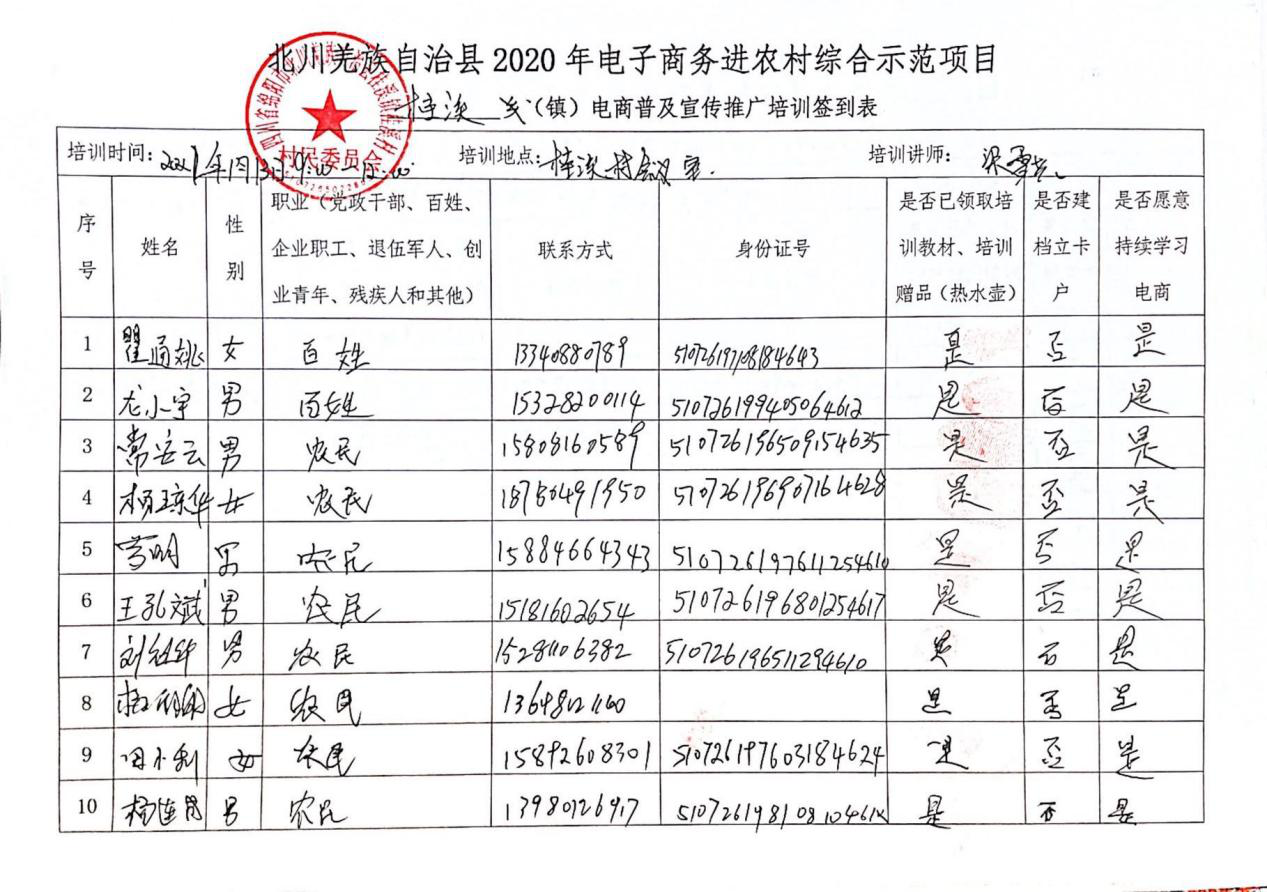 北川羌族自治县 2020 年电子商务进农村综合示范项目
桂溪 乡(镇)电商普及宣传推广培训签到表
村民委员会
培训时间: 2021年1月13日9:00—12:00 培训地点: 桂溪村会议室. 培训讲师:
序号 姓名 性别 职业（党政干部、百姓、企业职工、退伍军人、创业青年、残疾人和其他） 联系方式 身份证号 是否已领取培训教材、培训赠品（热水壶） 是否建档立卡户 是否愿意持续学习电商
1 瞿通姚 女 百姓 13340880789 510726197108184643 是 否 是
2 龙小宇 男 百姓 15328200114 510726199405064612 是 否 是
3 常安云 男 农民 15808160589 510726196509154635 是 否 是
4 杨琼华 女 农民 18780491950 510726196907164628 是 否 是
5 明 男 农民 15884664343 510726197611254610 是 否 是
6 王孔斌 男 农民 15181602654 510726196801254617 是 否 是
7 刘 华 男 农民 15281106382 510726196511294610 是 否 是
8 女 农民 是 否 是
9 周小利 女 农民 15892608301 510726197603184624 是 否 是
10 杨连 男 农民 13980126917 是 否 是